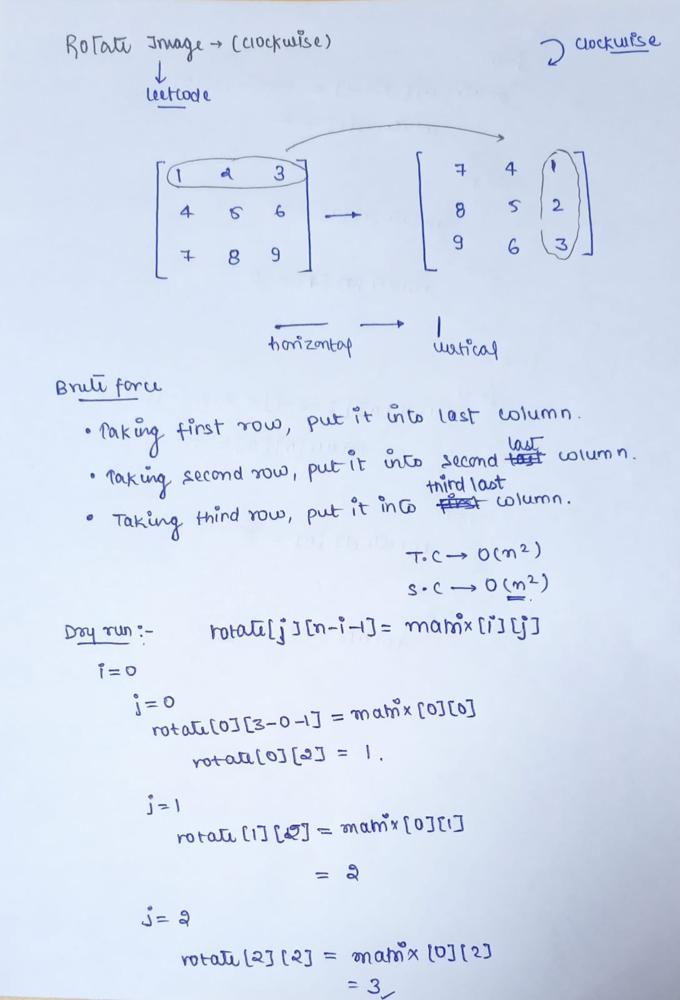 Rotate Image → (clockwise)
clockwise
↓
leetcode
1 2 3
4 5 6
7 8 9
→
7 4 1
8 5 2
9 6 3
horizontal → vertical
Brute force
• Taking first row, put it into last column.
• Taking second row, put it into second last column.
• Taking third row, put it into third last column.
T.C → O(n²)
S.C → O(n²)
Dry run :- rotate[j][n-i-1] = matrix[i][j]
i=0
j=0
rotate[0][3-0-1] = matrix[0][0]
rotate[0][2] = 1.
j=1
rotate[1][2] = matrix[0][1]
= 2
j= 2
rotate[2][2] = matrix[0][2]
= 3